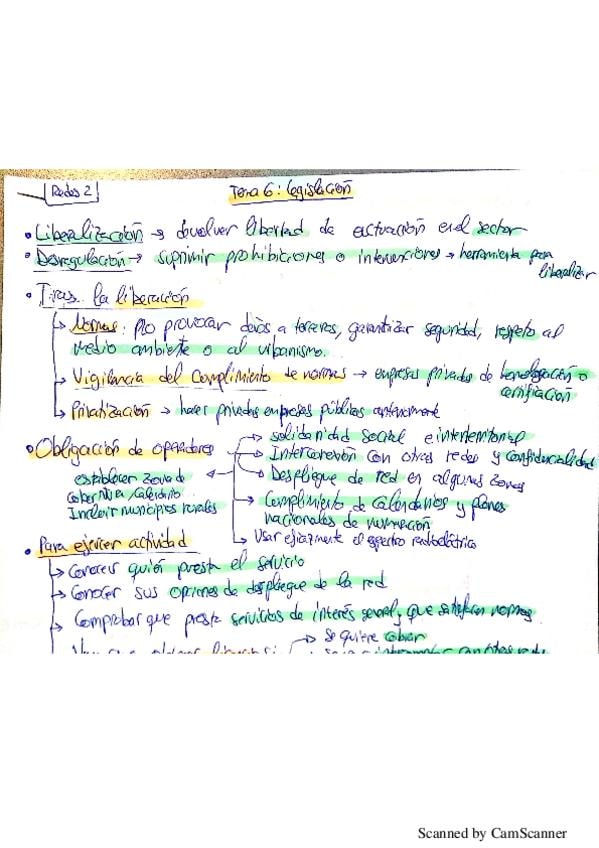 Redes 2
Tema 6: Legislación
• Liberalización → devolver libertad de actuación en el sector
• Desregulación → suprimir prohibiciones o intervenciones → herramienta para
liberalizar
• Tras la liberación
↳ Normas: no provocar daños a terceros, garantizar seguridad, respeto al
medio ambiente o al urbanismo.
↳ Vigilancia del cumplimiento de normas → empresas privadas de homologación o
certificación
↳ Privatización → hacer privadas empresas públicas anteriormente
• Obligación de operadores
→ solidaridad social e interterritorial
→ Interconexión con otras redes y confidencialidad
→ Despliegue de red en algunas zonas
establecer zona de
cobertura/calendario
Incluir municipios rurales
→ Cumplimiento de calendarios y planes
nacionales de numeración
→ Usar eficazmente el espectro radioeléctrico
• Para ejercer actividad
↳ Conocer quién presta el servicio
→ Conocer sus opciones de despliegue de la red
→ Comprobar que presta servicios de interés general, que satisfacen normas
→ se quiere cobrar
Scanned by CamScanner